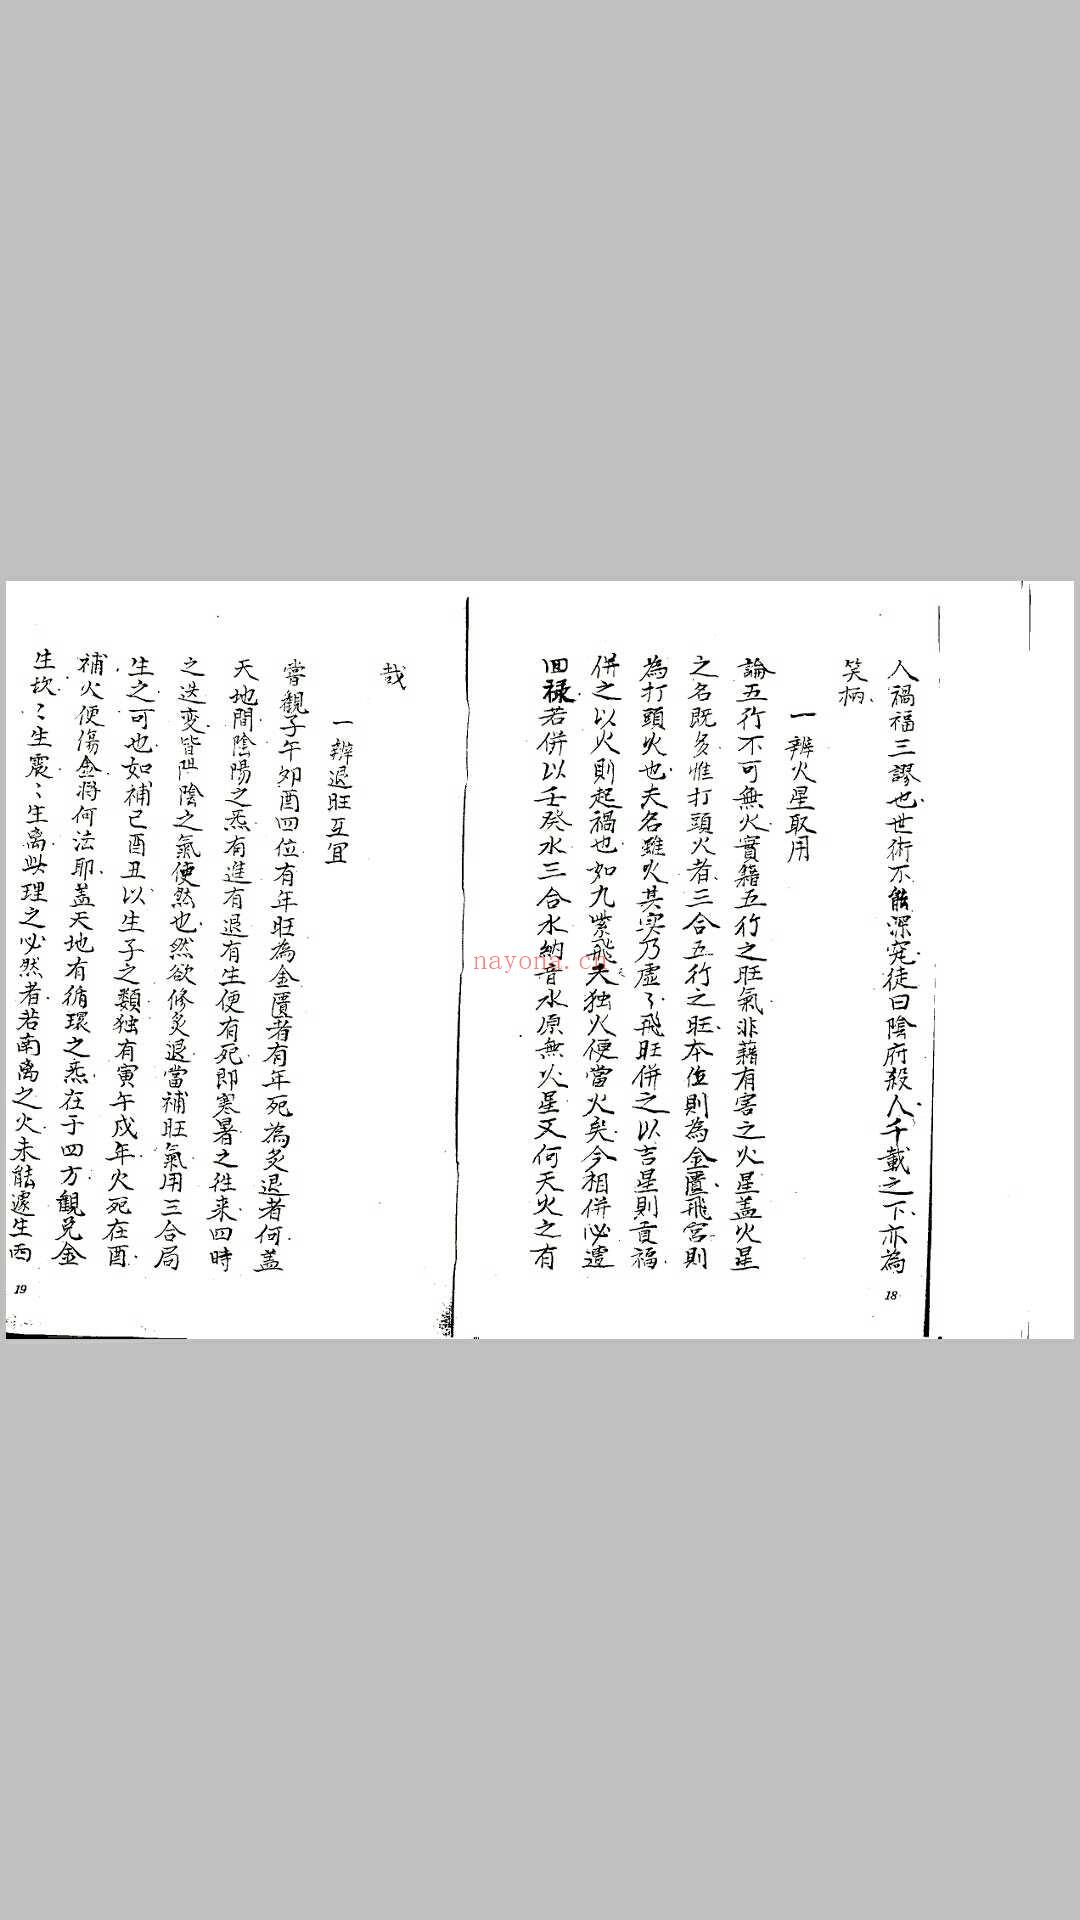 人禍福三謬也世術不能深究徒曰陰府殺人千載之下亦為
笑柄
一辨火星取用
論五行不可無火實籍五行之旺氣非藉有害之火星盖火星
之名既多惟打頭火者三合五行之旺本位則為金匱飛宮則
為打頭火也夫名雖火其实乃虛々飛旺併之以吉星則貢福
併之以火則起禍也如九紫飛天独火便當火矣今相併必遭
回禄若併以壬癸水三合水納音水原無火星又何天火之有
18
哉
一辨退旺互宜
嘗觀子午夘酉四位有年旺為金匱者有年死為炙退者何盖
天地間陰陽之炁有進有退有生便有死即寒暑之徃来四時
之迭変皆阻陰之氣使然也然欲修炙退當補旺氣用三合局
生之可也如補巳酉丑以生子之類独有寅午戌年火死在酉
補火便傷金将何法耶盖天地有循環之炁在于四方觀兑金
生坎〻生震〻生离此理之必然者若南离之火未能遽生西
19
nayona.cn